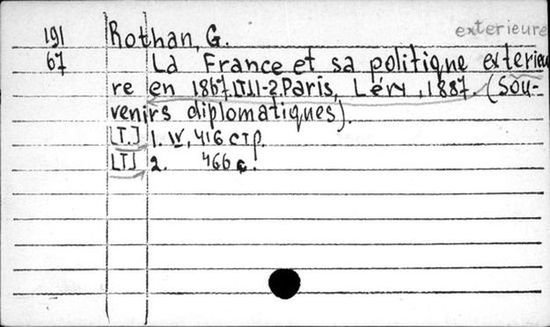 exterieure
191 Rothan, G.
67 La France et sa politique exterieu
re en 1867. [T.] 1-2. Paris, Lévy, 1887. (Sou-
venirs diplomatiques).
[T.] 1. IV, 416 стр.
[T] 2. 466 с.